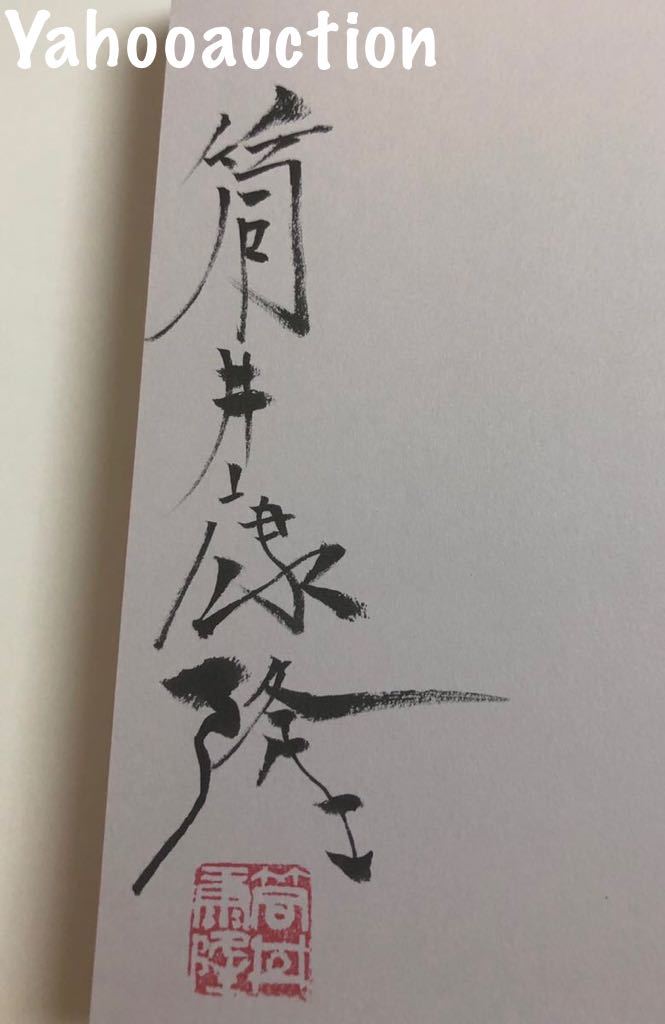 Yahooauction
筒井康隆
筒井
康隆